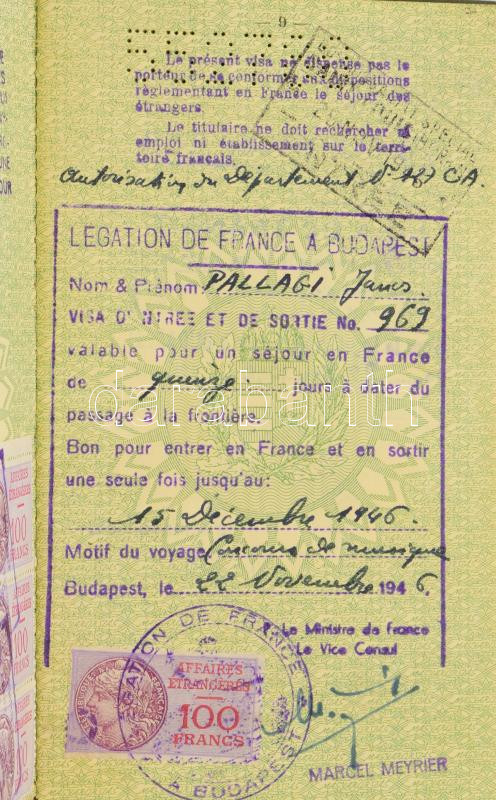 — 9 —
Le présent visa ne dispense pas le
porteur de se conformer aux dispositions
réglementant en France le séjour des
étrangers.
Le titulaire ne doit rechercher ni
emploi ni établissement sur le terri-
toire français.
Autorisation du Département N° 187 CA.
LEGATION DE FRANCE A BUDAPEST
Nom & Prénom: PALLAGI Janos.
VISA D'ENTREE ET DE SORTIE No. 969
valable pour un séjour en France
de quinze jours à dater du
passage à la frontière.
Bon pour entrer en France et en sortir
une seule fois jusqu'au:
15 Décembre 1946.
Motif du voyage Concours de musique
Budapest, le 22 Novembre 1946.
Le Ministre de France
Le Vice Consul
LEGATION DE FRANCE A BUDAPEST
AFFAIRES
ETRANGERES
100
FRANCS
MARCEL MEYRIER
AFFAIRES
ETRANGERES
100
FRANCS
100
FRANCS
darabanth